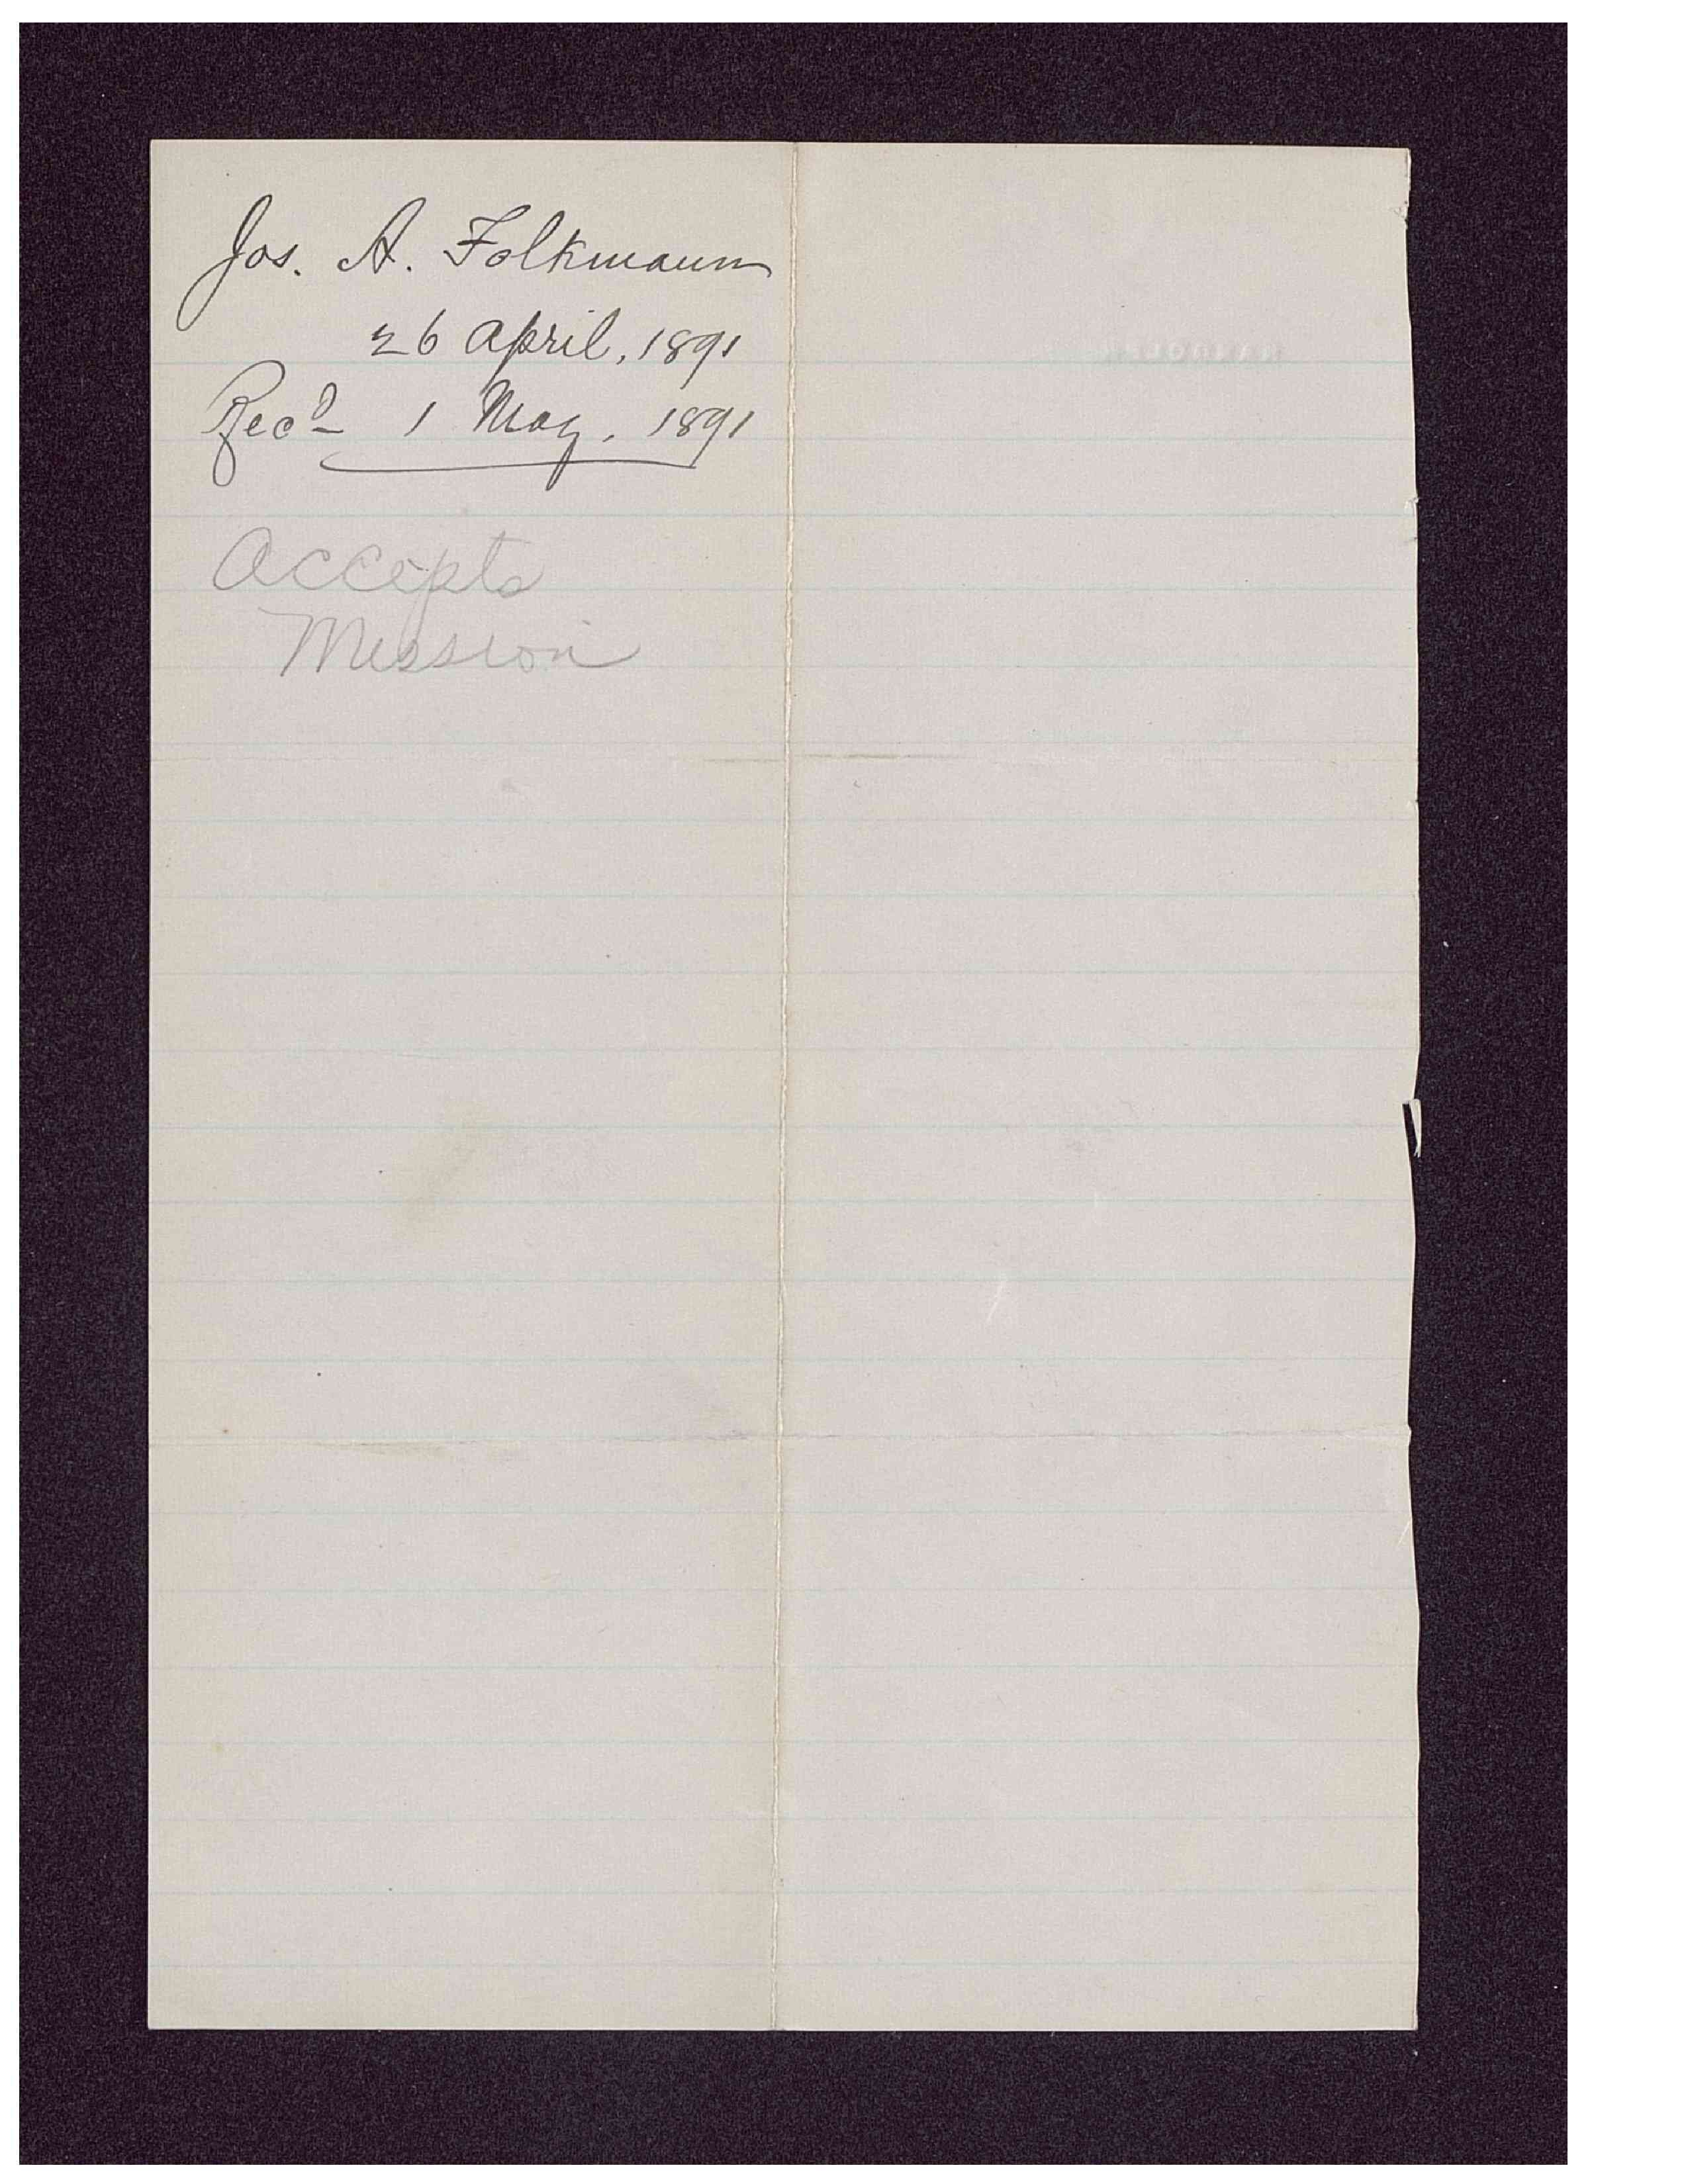 Jos. A. Folkmann
26 April, 1891
Recd 1 May, 1891
Accepts
Mission